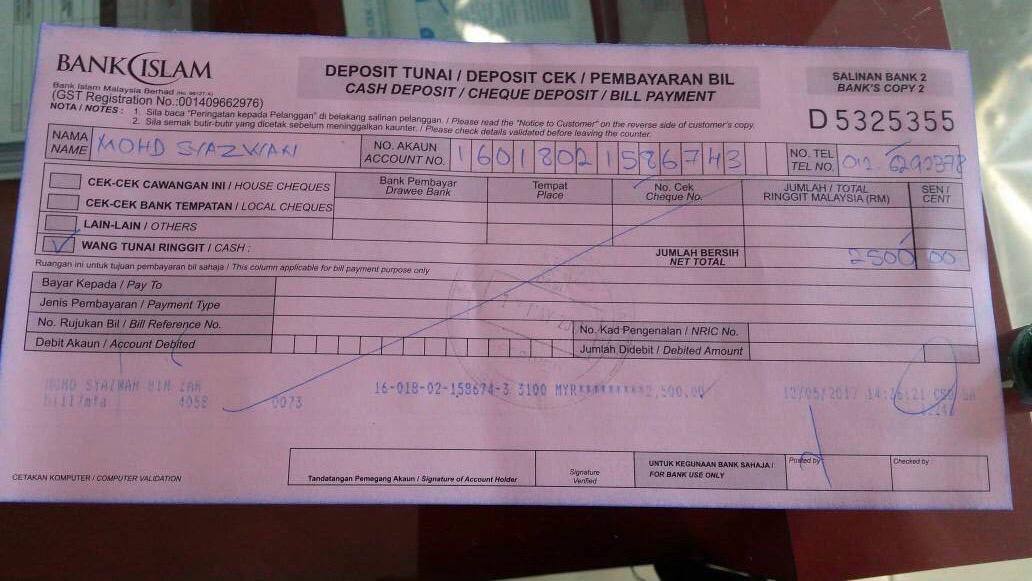 BANK ISLAM
Bank Islam Malaysia Berhad
(GST Registration No.:001409662976)
DEPOSIT TUNAI / DEPOSIT CEK / PEMBAYARAN BIL
CASH DEPOSIT / CHEQUE DEPOSIT / BILL PAYMENT
SALINAN BANK 2
BANK'S COPY 2
D 5325355
NOTA / NOTES : 1. Sila baca "Peringatan kepada Pelanggan" di belakang salinan pelanggan. / Please read the "Notice to Customer" on the reverse side of customer's copy.
2. Sila semak butir-butir yang dicetak sebelum meninggalkan kaunter. / Please check details validated before leaving the counter.
NAMA
NAME
MOHD SYAZWAN
NO. AKAUN
ACCOUNT NO.
16018021586743
NO. TEL
TEL NO.
012-6292378
CEK-CEK CAWANGAN INI / HOUSE CHEQUES
CEK-CEK BANK TEMPATAN / LOCAL CHEQUES
LAIN-LAIN / OTHERS
WANG TUNAI RINGGIT / CASH :
Bank Pembayar
Drawee Bank
Tempat
Place
No. Cek
Cheque No.
JUMLAH / TOTAL
RINGGIT MALAYSIA (RM)
SEN /
CENT
JUMLAH BERSIH
NET TOTAL
2500 00
Ruangan ini untuk tujuan pembayaran bil sahaja / This column applicable for bill payment purpose only
Bayar Kepada / Pay To
Jenis Pembayaran / Payment Type
No. Rujukan Bil / Bill Reference No.
No. Kad Pengenalan / NRIC No.
Debit Akaun / Account Debited
Jumlah Didebit / Debited Amount
MOHD SYAZWAN BIN 16-018-02-158674-3 3100 MYR*********2,500.00 12/05/2017 14:26:21
4058 0073
CETAKAN KOMPUTER / COMPUTER VALIDATION
Tandatangan Pemegang Akaun / Signature of Account Holder
Signature
Verified
UNTUK KEGUNAAN BANK SAHAJA /
FOR BANK USE ONLY
Posted by
Checked by :